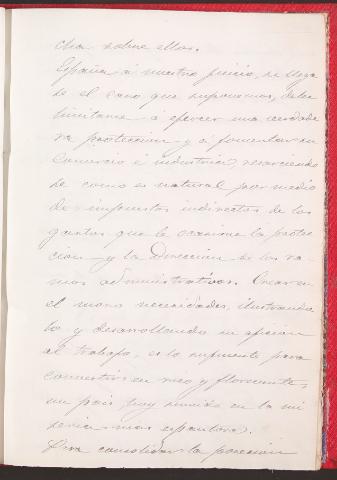 cha sobre ellos.
España á nuestro juicio, si llega
do el caso que suponemos, debe
limitarse á ejercer una verdade
ra proteccion y á fomentar su
Comercio é industria, resarciendo
se como es natural por medio
de impuestos indirectos de los
gastos que le ocasione la protec
cion y la direccion de los ra-
mos administrativos. Crear en
el moro necesidades, ilustrando
lo y desarrollando su aficion
al trabajo, es lo suficiente para
convertir en rico y floreciente,
un pais, hoy sumido en la mi
seria mas espantosa.
Para consolidar la posesion